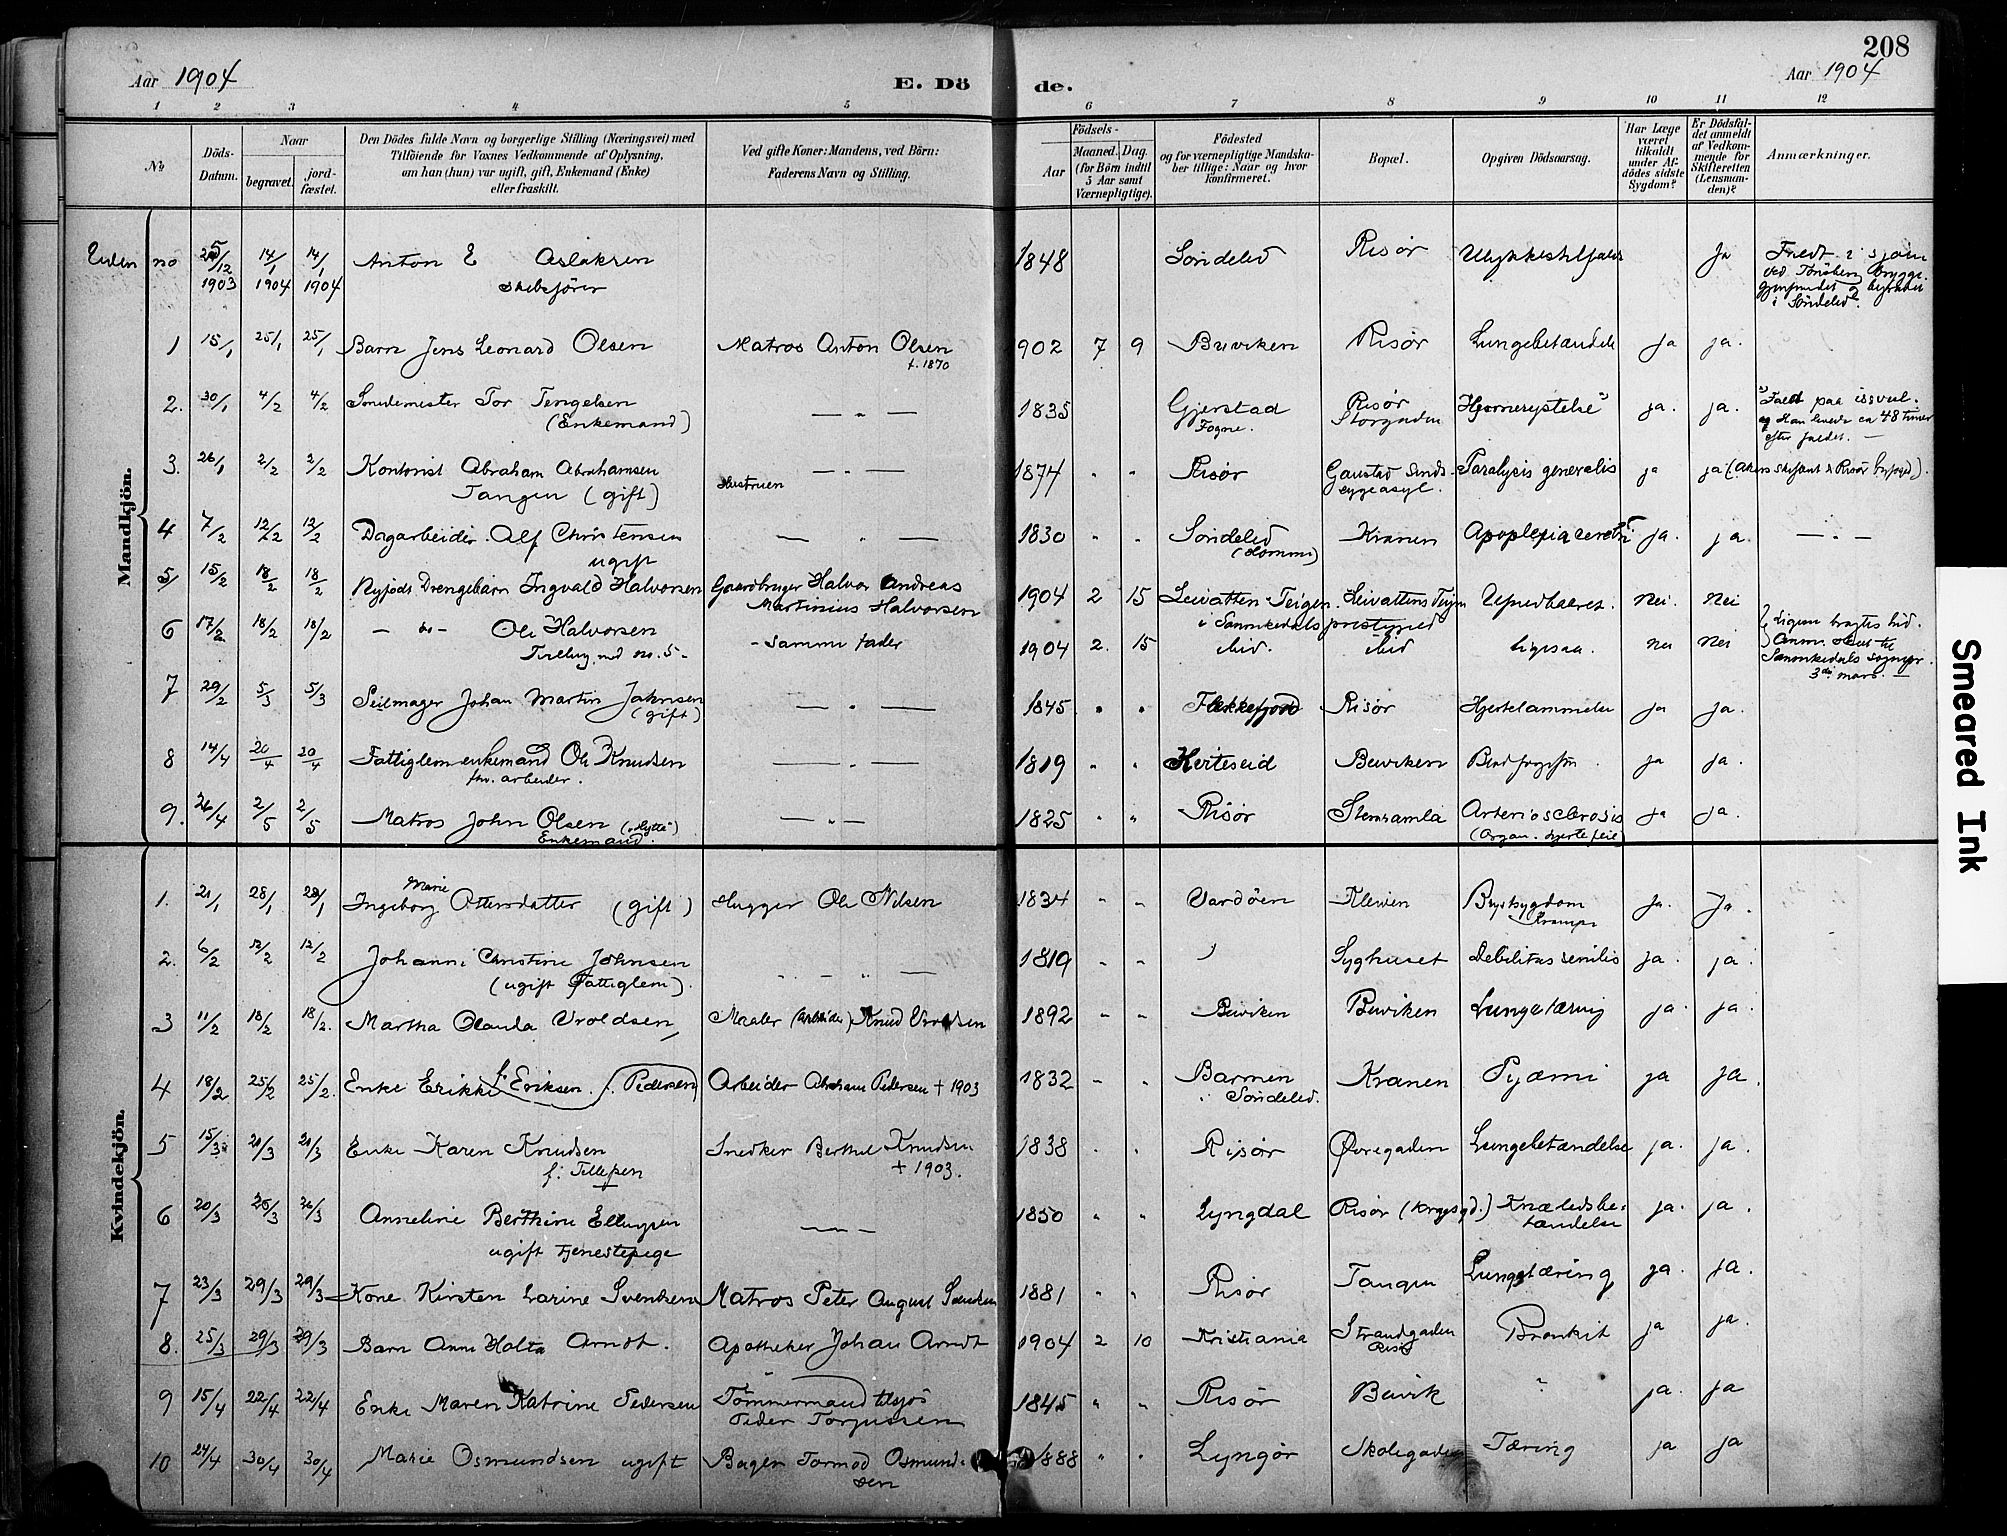 208
Aar 1904
E. Dö
de.
Aar 1904
1 2 3 4 5 6 7 8 9 10 11 12
No.
Döds-
Datum.
Naar
begravet.
jord-
fæstet.
Den Dödes fulde Navn og borgerlige Stilling (Næringsvei) med
Tilföiende for Voxnes Vedkommende af Oplysning,
om han (hun) var ugift, gift, Enkemand (Enke)
eller fraskilt.
Ved gifte Koner: Mandens, ved Börn:
Faderens Navn og Stilling.
Födsels-
Aar
Maaned. Dag.
(for Börn indtil
5 Aar samt
Værnepligtige).
Födested
og for værnepligtige Mandska-
ber tillige: Naar og hvor
konfirmeret.
Bopæl.
Opgiven Dödsaarsag.
Har Læge
været
tilkaldt
under Af-
dödes sidste
Sygdom?
Er Dödsfal-
det anmeldt
af Vedkom-
mende for
Skifteretten
(Lensman-
den)?
Anmærkninger.
Mandkjön.
Uden no 25/12 1903 14/1 1904 14/1 1904 Anton E Aslaksen
skibsfører
1848 Søndeled Risør Ulykkestilfælde Ja
Faldt i sjøen
ved brygge.
gjenfundet og begravet
i Søndeled.
1 15/1 25/1 25/1 Barn Jens Leonard Olsen Matros Anton Olsen
f. 1870
902 7 9 Buviken Risør Lungebetændelse ja ja.
2. 30/1 4/2 4/2 Smedemester Tor Tengelsen
(Enkemand)
— „ —
1835 Gjerstad
Fogne.
Risør
Storgaden
Hjernerystelse" ja. ja.
"Faldt paa issvul.
og Han levede ca 48 timer
efter faldet. —
3. 26/1 2/2 2/2 Kontorist Abraham Abrahamsen
Tangen (gift)
— „ —
Hustruen
1874 „ „ Risør Gaustad Sinds-
sygeasyl.
Paralysis generalis ja ja (Akers skifteret & Risør byfoged).
4 7/2 12/2 12/2 Dagarbeider. Alf Christensen
ugift
— „ —
1830 „ „ Søndeled
(Lomme)
Kranen Apoplexia cerebri ja. ja — „ —
5 15/2 18/2 18/2 Nyfødt Drengebarn Ingvald Halvorsen Gaardbruger Halvor Andreas
Martinius Halvorsen
1904 2 15 Leivatten-Teigen
i Sannikedals prestegjeld
Leivattens Teigen Ufuldbaaret. Nei. Nei
Ligene bragtes hid.
6 17/2 18/2 18/2 — do — Ole Halvorsen
Tvilling med no. 5.
- samme fader
1904 2. 15 ibid. ibid ligesaa. Nei Nei
Anm. skeet til
Sannikedals sognepr.
3die mars. —
7 29/2 5/3 5/3 Seilmager Johan Martin Jahnsen
(gift)
— „ —
1845 „ „ Flekkefjord Risør Hjertelammelse ja ja.
8 14/4 20/4 20/4 Fattiglem enkemand Ole Knudsen
fhv. arbeider.
— „ —
1819 „ „ Hviteseid Buviken Blodforgiftn. ja ja.
9. 26/4 2/5 2/5 Matros John Olsen („Hytta")
Enkemand.
— „ —
1825 „ „ Risør Stensamla Arteriosclerosis
(Organ. hjertefeil)
ja ja.
Kvindekjön.
1. 21/1 28/1 28/1 Ingeborg Marie Ottersdatter (gift) Hugger Ole Nilsen
1834 „ „ Vardøen Kleiven Brystsygdom
Krampe
Ja. Ja.
2. 6/2 12/2 12/2 Johanne Christine Johnsen
(ugift Fattiglem).
— „ —
1819 „ „ Syghuset Debilitas senilis ja. ja.
3 11/2 18/2 18/2. Martha Olanda Vroldsen Maaler (arbeider) Knud Vroldsen
1892 „ „ Buviken Buviken Lungetæring ja. ja.
4 18/2 25/2 25/2. Enke Erikke f. Eriksen. Pedersen Arbeider Abraham Pedersen + 1903
1832 „ „ Barmen
Søndeled.
Kranen Pyæmi ja ja.
5 15/3 21/3 21/3 Enke Karen Knudsen
f. Tellefsen
Snedker Berthel Knudsen
+ 1903.
1838 „ „ Risør Øvregaden Lungebetændelse ja. ja.
6 20/3 26/3 26/3 Anneline Berthine Ellingsen
ugift Tjenestepige
— „ —
1850 „ „ Lyngdal Risør Knæledsbe-
tændelse
ja. ja.
7 23/3 29/3 29/3 Kone Kirsten Larine Svendsen Matros Peter August Svendsen
1881 „ „ Risør Tangen Lungetæring ja. ja.
8. 25/3 29/3 29/3 Barn Anne Holta Arndt. Apotheker Johan Arndt
1904 2 10 Kristiania Strandgaden
Risør
Bronkit ja ja.
9 15/4 22/4 22/4 Enke Maren Katrine Pedersen Tømmermand tilsjøs
Peder Torjussen
1845 „ „ Risør Buvik „ ja. ja
10 24/4 30/4 30/4 Marie Osmundsen ugift Bager Tormod Osmund-
sen
1888 „ „ Lyngør Skolegaden Tæring ja ja
Smeared Ink